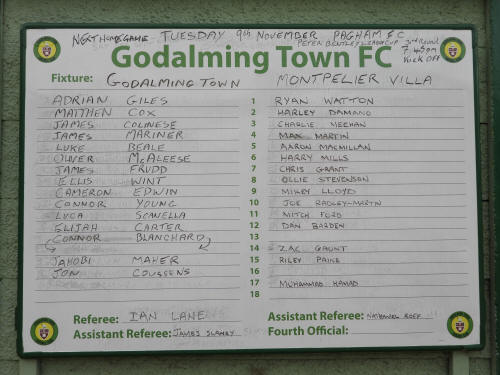 NEXT HOME GAME TUESDAY 9th NOVEMBER PAGHAM F.C
PETER BENTLEY LEAGUE CUP 3rd Round
7.45pm
Kick Off
Godalming Town FC
Fixture: GODALMING TOWN MONTPELIER VILLA
ADRIAN GILES 1 RYAN WATTON
MATTHEW COX 2 HARLEY DAMANO
JAMES COLINESE 3 CHARLIE MEEHAN
JAMES MARINER 4 MAX MARTIN
LUKE BEALE 5 AARON MACMILLAN
OLIVER McALEESE 6 HARRY MILLS
JAMES FRUDD 7 CHRIS GRANT
ELLIS WINT 8 OLLIE STEVENSON
CAMERON EDWIN 9 MIKEY LLOYD
CONNOR YOUNG 10 JOE RADLEY-MARTIN
LUCA SCANELLA 11 MITCH FORD
ELIJAH CARTER 12 DAN BARDEN
CONNOR BLANCHARD 13
14 ZAC GAUNT
JAHOBI MAHER 15 RILEY PAINE
JON COUSSENS 16
17 MUHAMMAD HAMAD
18
Referee: IAN LANE Assistant Referee:
Assistant Referee: JAMES Fourth Official: